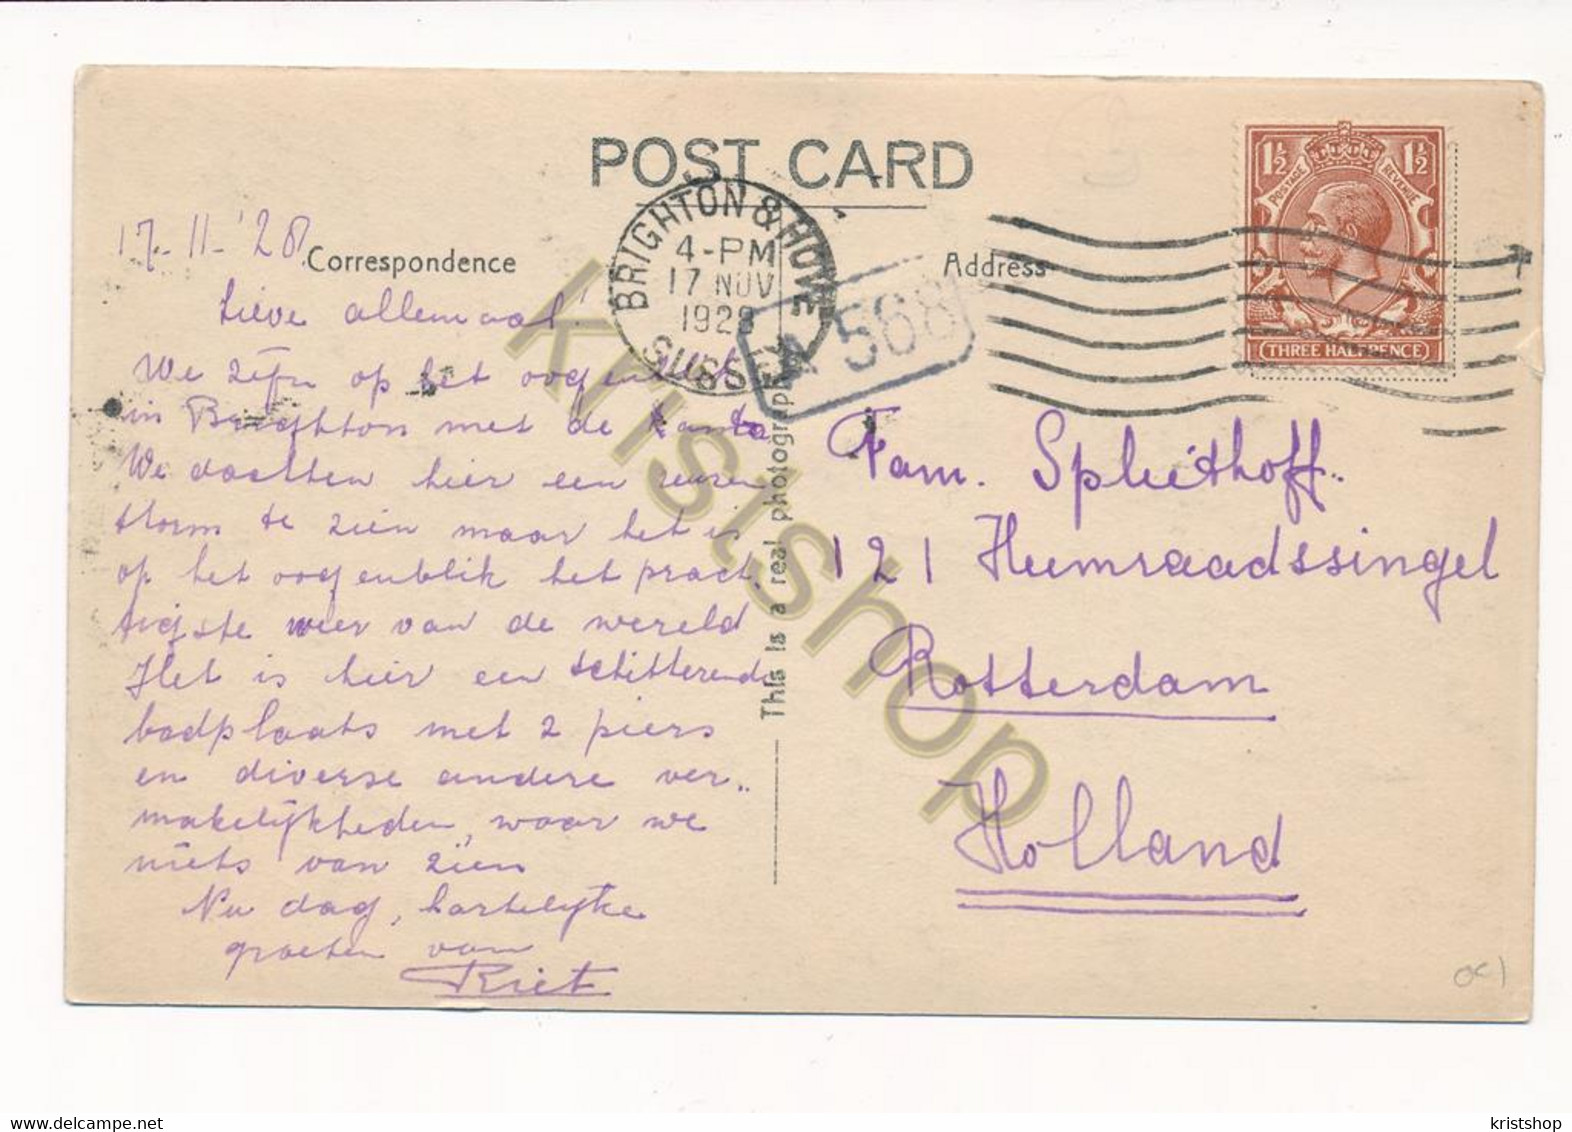 POST CARD
17-11-'28
Correspondence
Address
BRIGHTON & HOVE
4-PM
17 NOV
1928
SUSSEX
A 568
1½ 1½
POSTAGE REVENUE
THREE HALFPENCE
Lieve allemaal!
We zijn op het oogenblik
in Brighton met de
We dachten hier een reuzen
storm te zien maar het is
op het oogenblik het prach
tigste weer van de wereld
Het is hier een schitterende
badplaats met 2 piers
en diverse andere ver..
makelijkheden, waar we
niets van zien
Nu dag, hartelijke
groeten van
Riet
This is a real photograph
Fam. Spliethoff..
121 Heemraadssingel
Rotterdam
Holland
kristshop
kristshop
www.delcampe.net